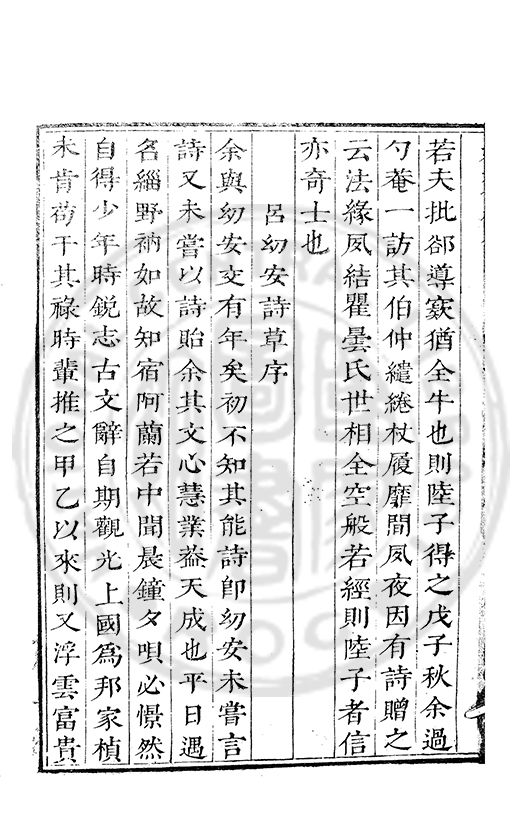 若夫批郤導窾猶全牛也則陸子得之戊子秋余過
勺菴一訪其伯仲繾綣杖履靡間夙夜因有詩贈之
云法緣夙結瞿曇氏世相全空般若經則陸子者信
亦奇士也
呂幼安詩草序
余與幼安交有年矣初不知其能詩卽幼安未嘗言
詩又未嘗以詩貽余其文心慧業葢天成也平日遇
名緇野衲如故知宿阿蘭若中聞晨鐘夕唄必憬然
自得少年時鋭志古文辭自期觀光上國爲邦家楨
未肯苟干其祿時輩推之甲乙以來則又浮雲富貴